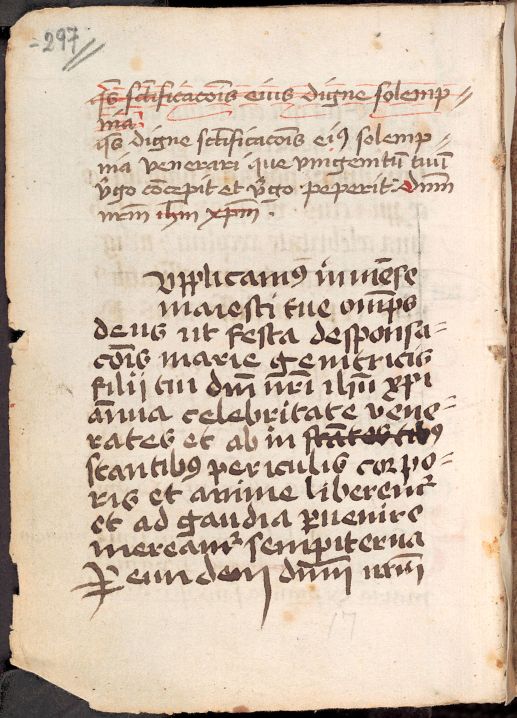 -297
qs̄ sctificacōis eius digne solemp
nia
qs̄ digne sctificacōis eiꝰ solemp
nia venerari que vnigenitū tuū
v̄go cōcepit et v̄go peperit dnm̄
nr̄m ihm̄ xp̄m .
vpplicamꝰ im̄ēse
maiesti tue om̄ps
deus ut festa desponsa
cōis marie genitricis
filij tui dn̄i nr̄i ihū xp̄i
ān̄ua celebritate vene
rātes et ab in
stantibꝰ periculis corpo
ris et anime liberent᷑
et ad gaudia ꝑuenire
mereant᷑ sempiterna
Ꝑ eundem dnm̄ nr̄m
17